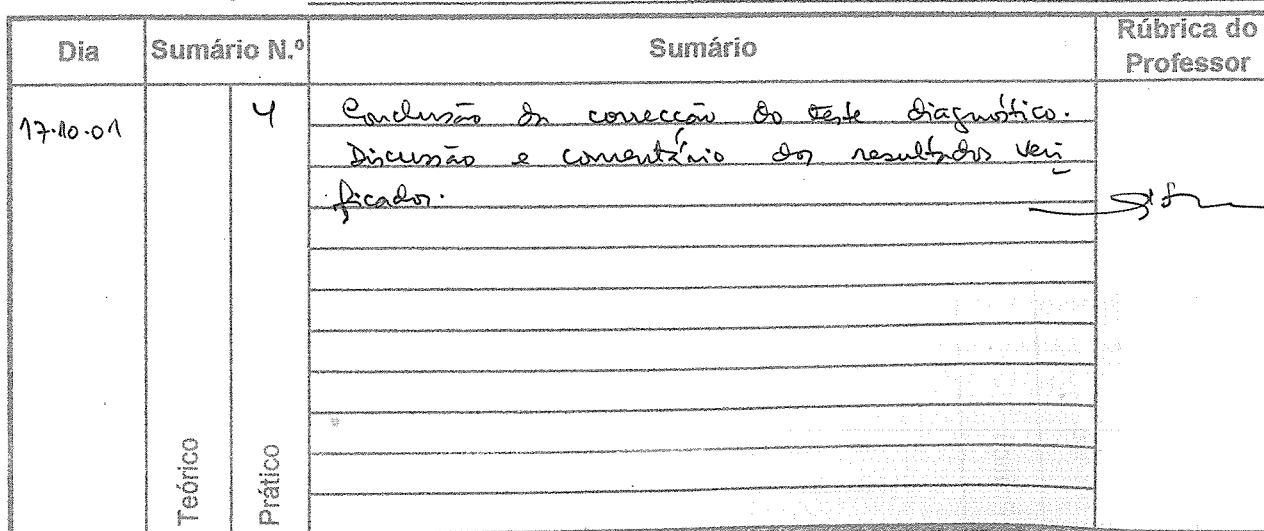 Dia Sumário N.º Sumário Rúbrica do Professor
17.10.01 4 Conclusão da correcção do teste diagnóstico.
Discussão e comentário dos resultados veri
ficados.
Teórico Prático